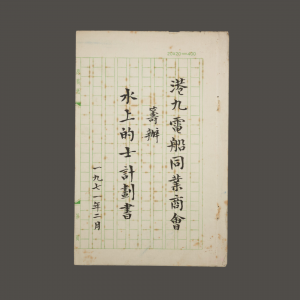 港九電船同業商會
籌辦
水上的士計劃書
一九七一年二月